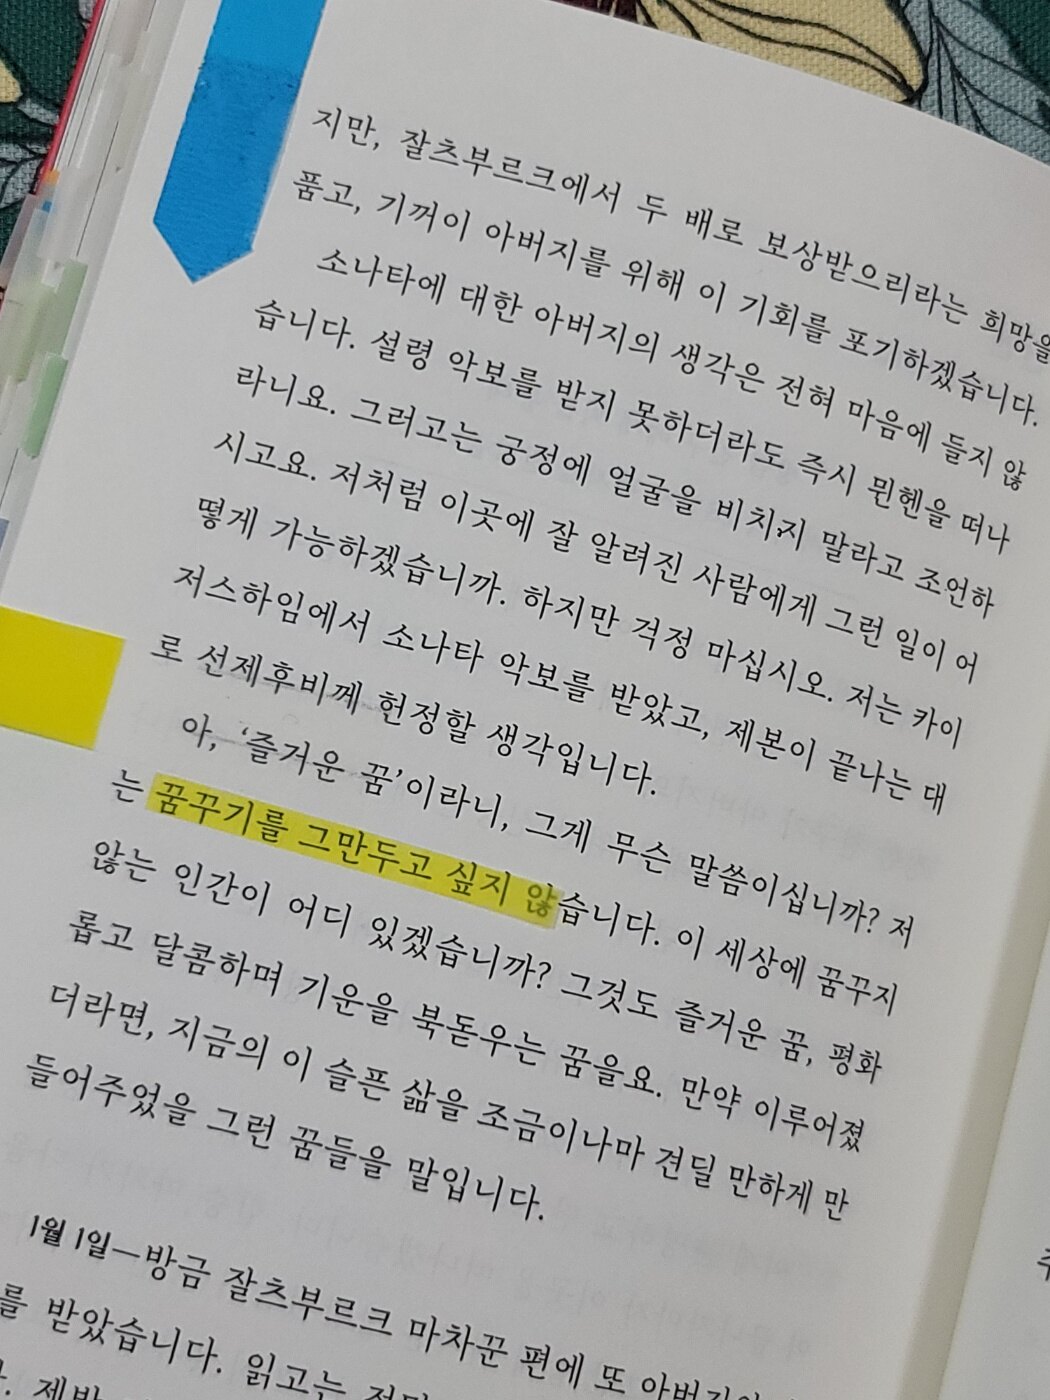 지만, 잘츠부르크에서 두 배로 보상받으리라는 희망을
품고, 기꺼이 아버지를 위해 이 기회를 포기하겠습니다.
소나타에 대한 아버지의 생각은 전혀 마음에 들지 않
습니다. 설령 악보를 받지 못하더라도 즉시 뮌헨을 떠나
라니요. 그러고는 궁정에 얼굴을 비치지 말라고 조언하
시고요. 저처럼 이곳에 잘 알려진 사람에게 그런 일이 어
떻게 가능하겠습니까. 하지만 걱정 마십시오. 저는 카이
저스하임에서 소나타 악보를 받았고, 제본이 끝나는 대
로 선제후비께 헌정할 생각입니다.
아, ‘즐거운 꿈’이라니, 그게 무슨 말씀이십니까? 저
는 꿈꾸기를 그만두고 싶지 않습니다. 이 세상에 꿈꾸지
않는 인간이 어디 있겠습니까? 그것도 즐거운 꿈, 평화
롭고 달콤하며 기운을 북돋우는 꿈을요. 만약 이루어졌
더라면, 지금의 이 슬픈 삶을 조금이나마 견딜 만하게 만
들어주었을 그런 꿈들을 말입니다.
1월 1일—방금 잘츠부르크 마차꾼 편에 또
를 받았습니다. 읽고는